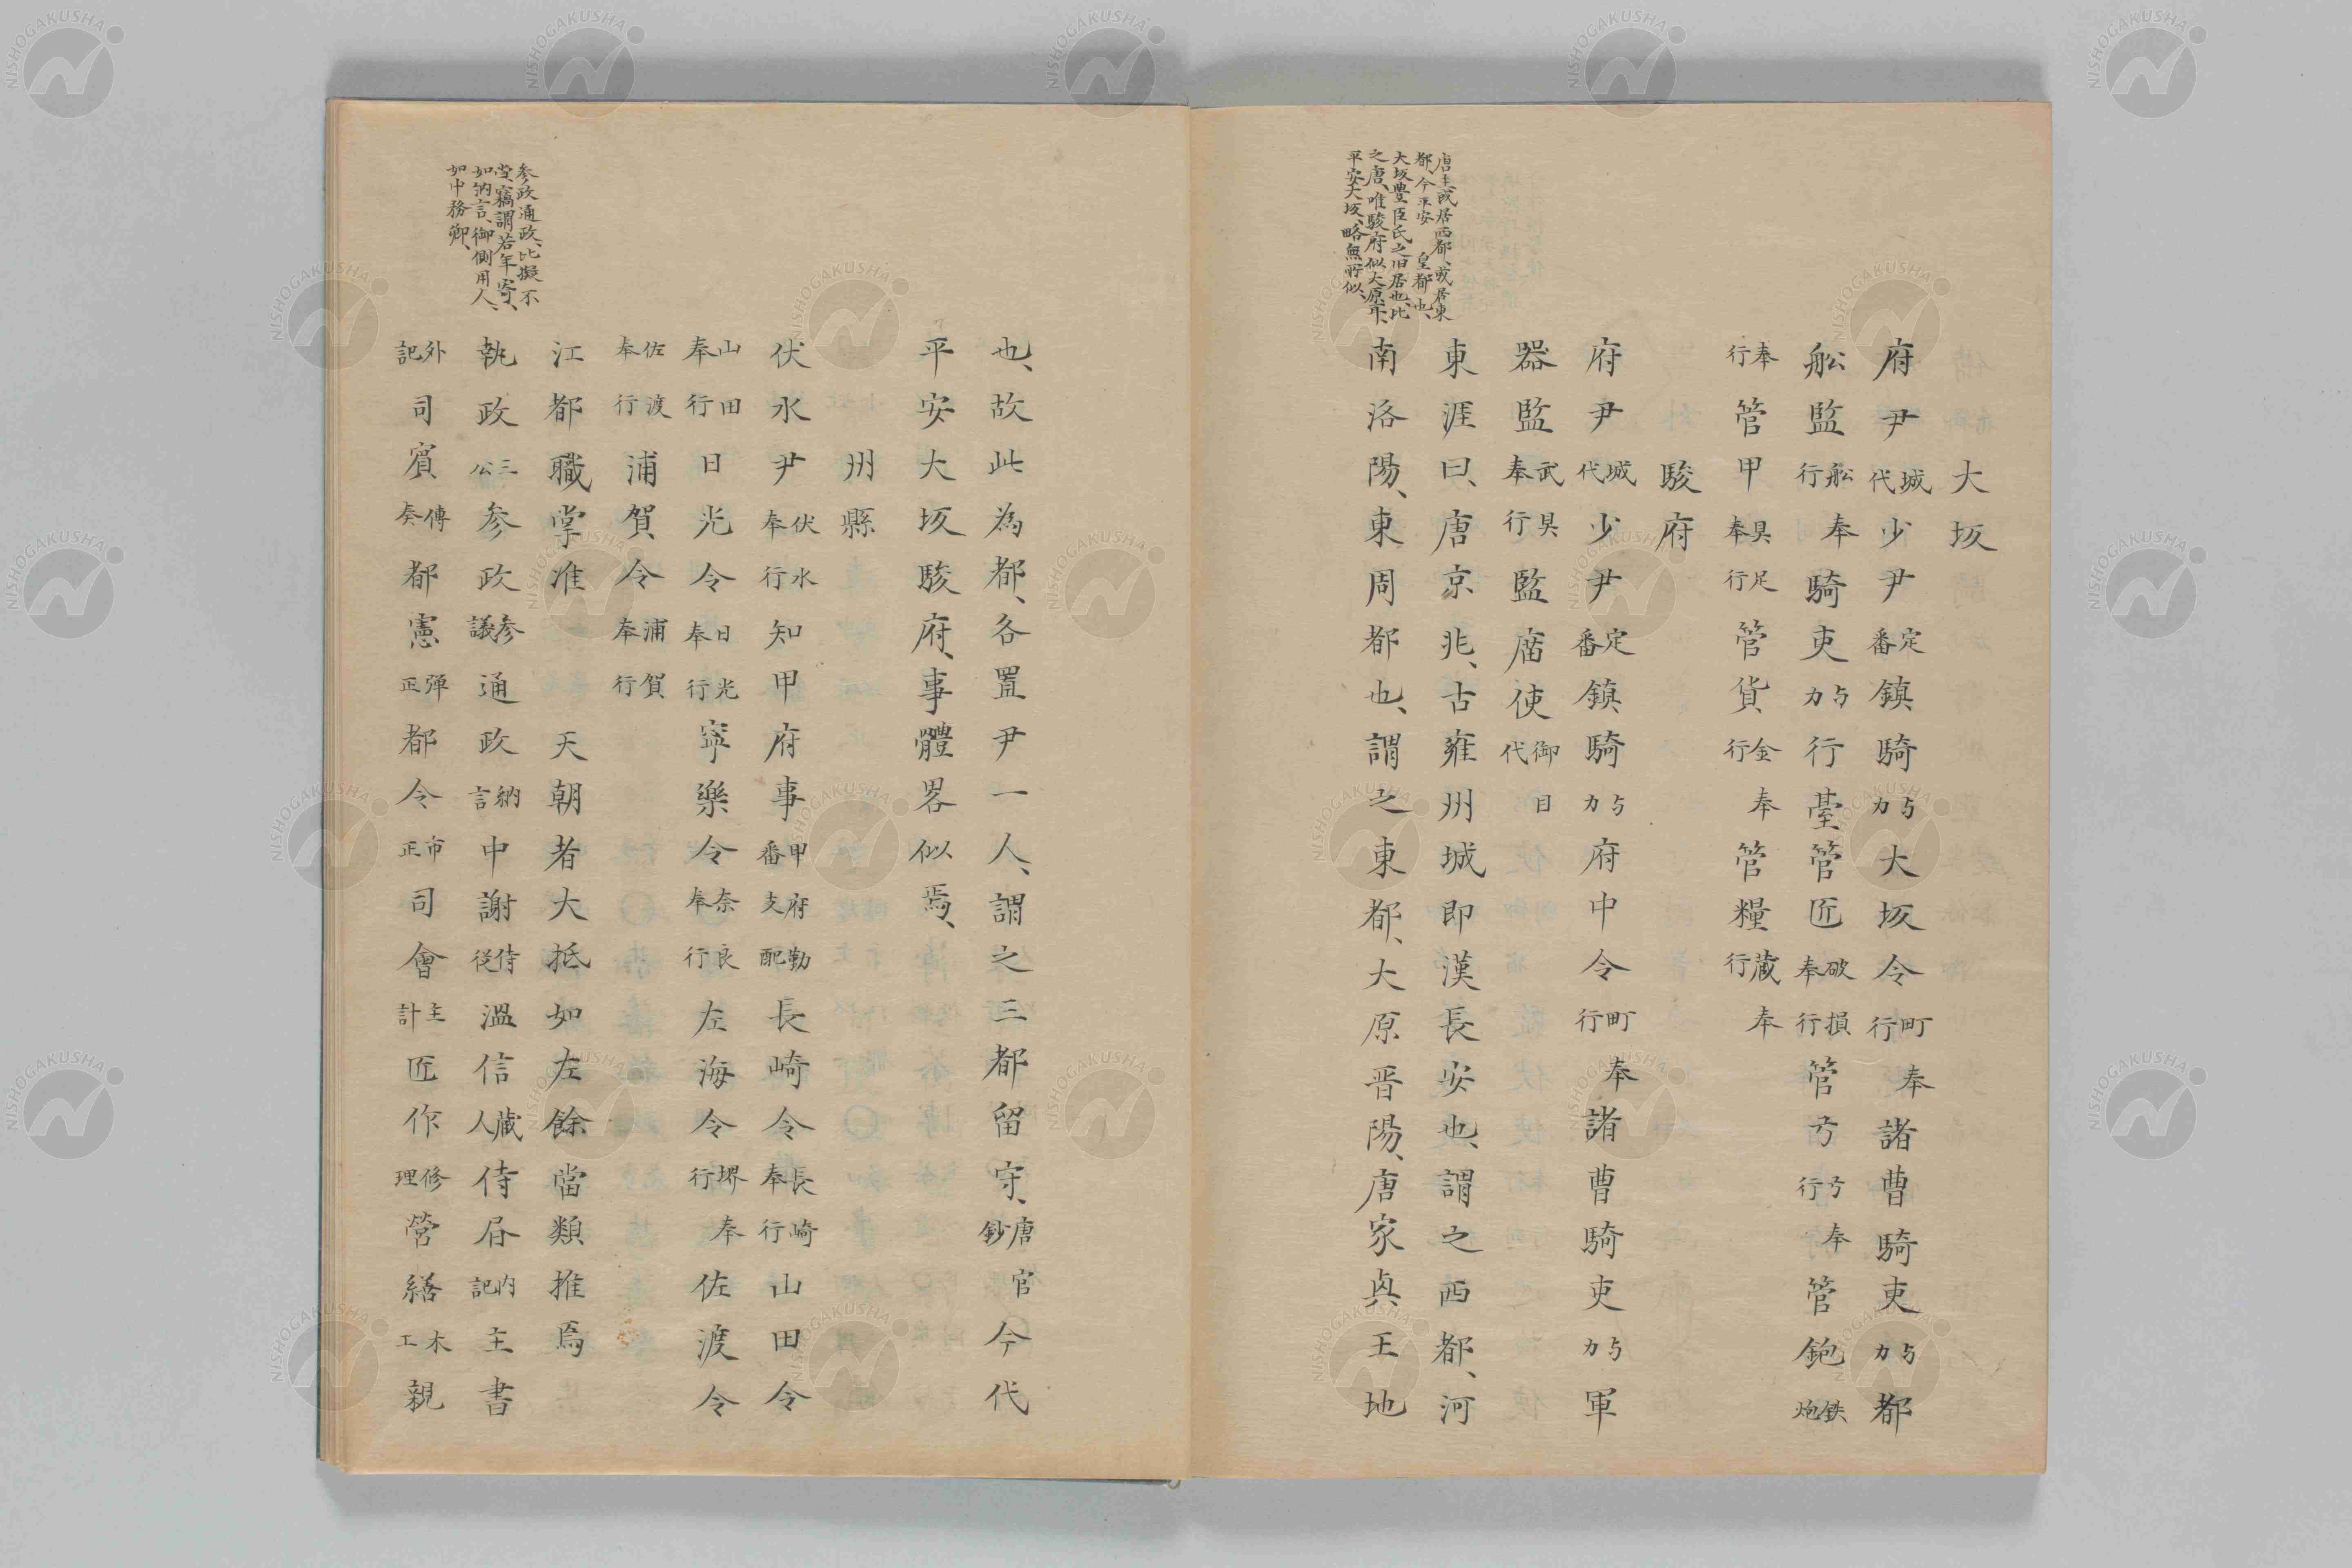 唐主或居西都、或居東
都、今平安　皇都也、
大坂豊臣氏之旧居也、比
之唐、唯駿府似大原耳、
平安大坂、略無所似、
大坂
府尹城代少尹定番鎮騎与力大坂令町奉行諸曹騎吏与力都
舩監舩奉行騎吏与力行臺管匠破損奉行管弓弓奉行管鉋鉄炮
奉行管甲具足奉行管貨金奉行管糧蔵奉行
駿府
府尹城代少尹定番鎮騎与力府中令町奉行諸曹騎吏与力軍
器監武具奉行監庿使御目代
東涯曰、唐京兆、古雍州城即漢長安也、謂之西都、河
南洛陽、東周都也、謂之東都、大原晋陽、唐家與王地
也、故此為都、各置尹一人、謂之三都留守、唐官鈔今代
平安大坂駿府、事體畧似焉、
州縣
伏水尹伏水奉行知甲府事甲府勤番支配長崎令長崎奉行山田令
山田奉行日光令日光奉行寧樂令奈良奉行左海令堺奉行佐渡令
佐渡奉行浦賀令浦賀奉行
参政通政、比擬不
堂、竊謂若年寄、
如納言、御側用人、
如中務卿、
江都職掌准　天朝者大抵如左餘當類推焉
執政三公参政参議通政納言中謝侍従溫信蔵人侍㞐内記主書
外記司賓傳奏都憲弾正都令市正司會主計匠作修理營繕木工親
NISHOGAKUSHA